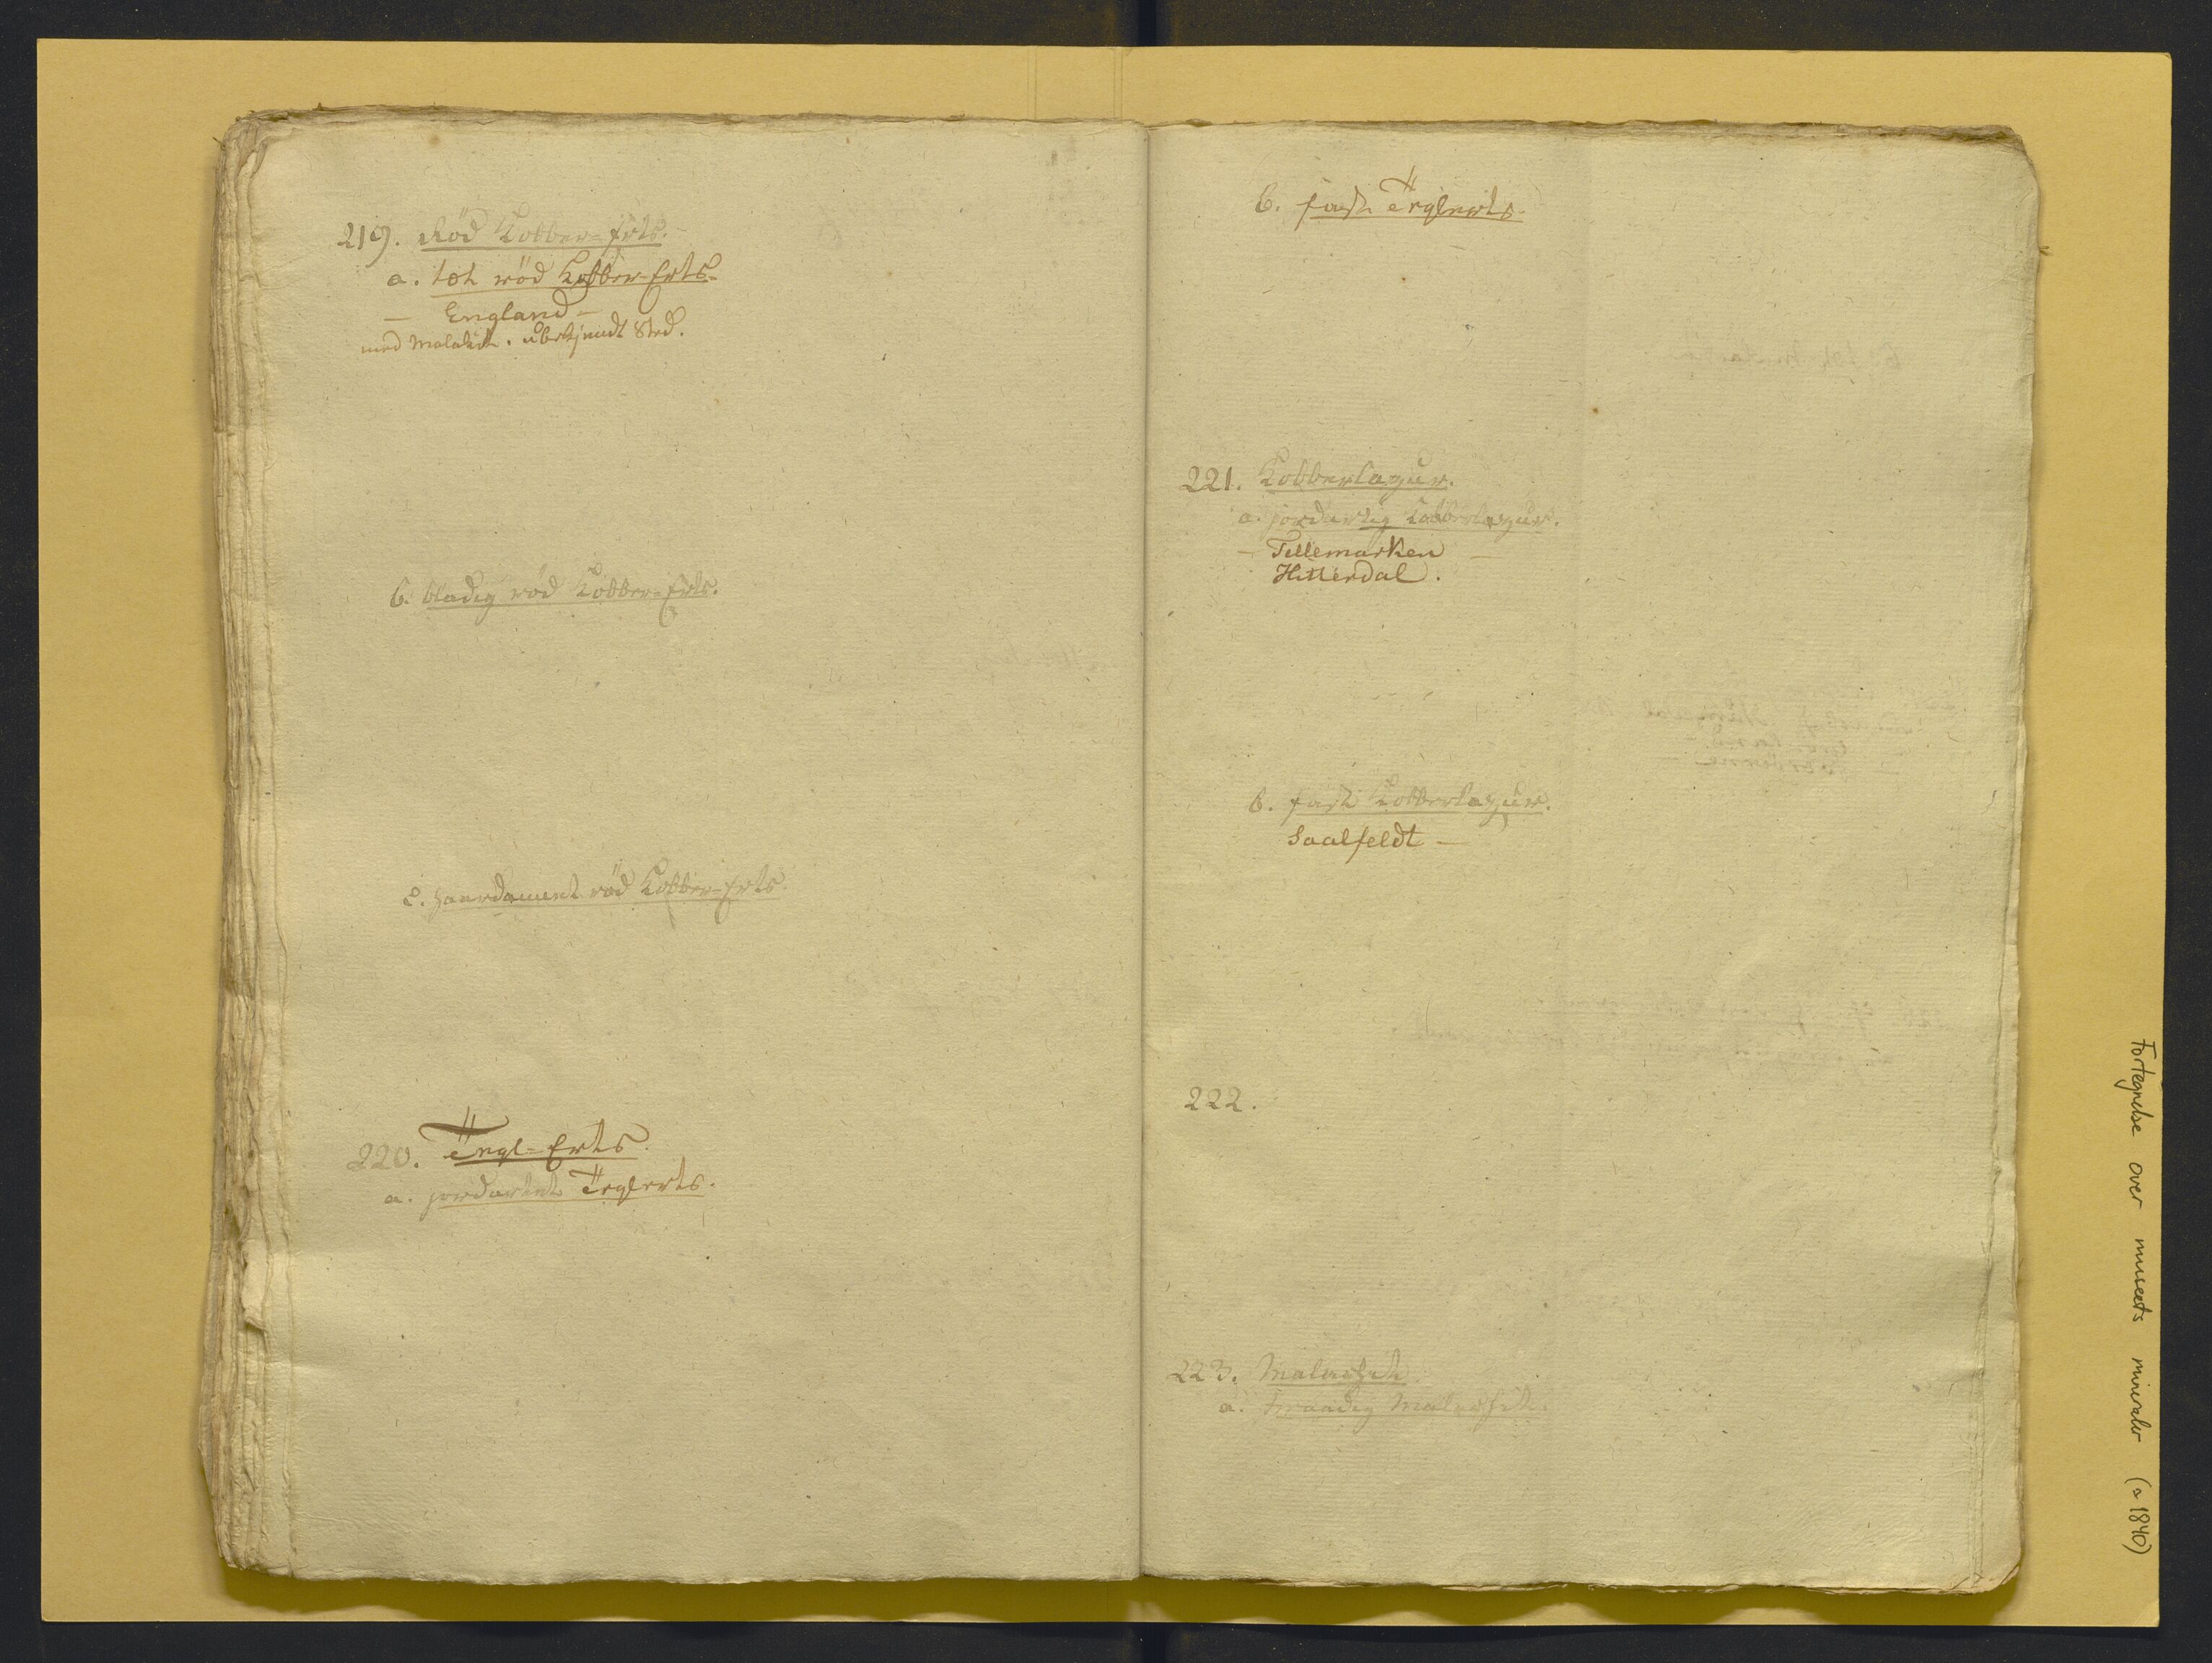 219. Röd Kobber-Erts.
a. tæt röd Kobber-Erts.
— England —
med Malakit. ubekjendt Sted.
b. bladig röd Kobber-Erts.
c. haardannet röd Kobber-Erts.
220. Tegl-Erts.
a. jordartet Teglerts.
b. fast Teglerts.
221. Kobberlazur.
a. jordartig Kobberlazur.
— Tellemarken —
Hitterdal.
b. fast Kobberlazur.
Saalfeldt —
222.
223. Malachit.
a. traadig Malachit.
Fortegnelse over museets mineraler (ca 1840)